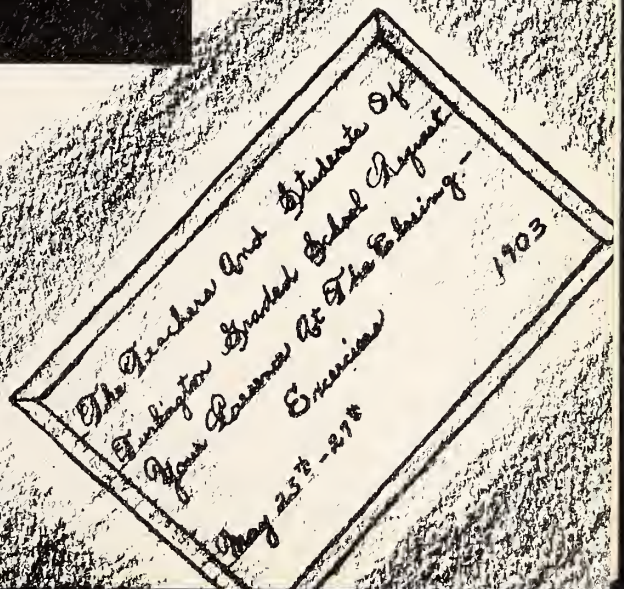 The Teachers And Students Of
Turlington Graded School Request
Your Presence At The Closing-
Exercises
May 25th - 27th 1903